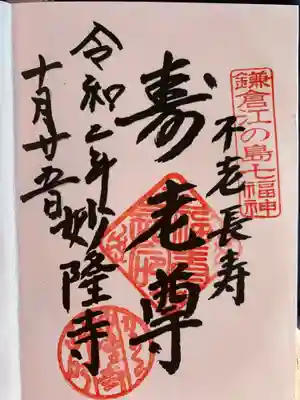 鎌倉江の島七福神
不老長寿
寿老尊
令和二年妙隆寺
十月廿五日